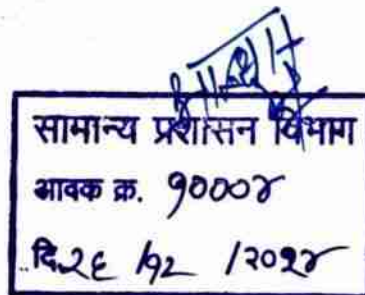 सामान्य प्रशासन विभाग
आवक क्र. १०००४
दि.२६ /१२ /२०२४